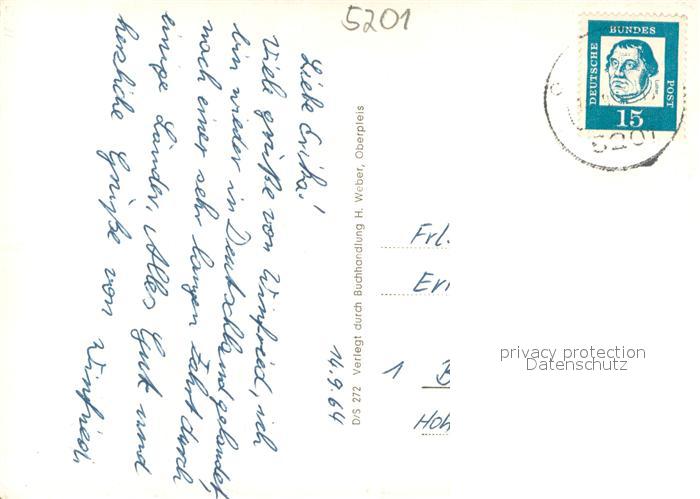 5201
DEUTSCHE
BUNDES
POST
15
5201
Liebe Erika!
Viele grüße von Winfried, ich
bin wieder in Deutschland gelandet,
nach einer sehr langen Fahrt durch
einige Länder, Alles Gut und
herzliche Grüße von Winfried.
14.9.64
D/S 272 Verlegt durch Buchhandlung H. Weber, Oberpleis
Frl.
Eri
1 B
Hoh
privacy protection
Datenschutz